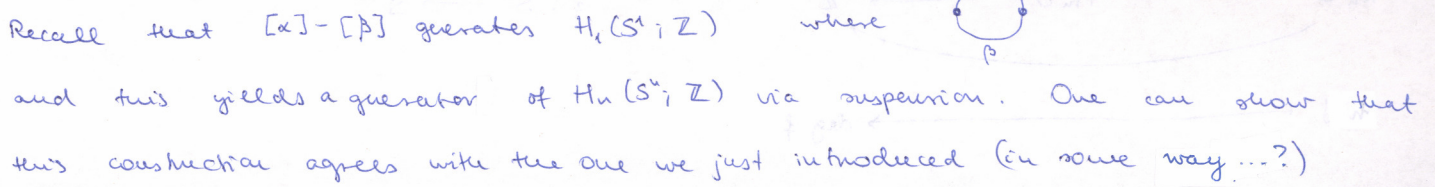 Recall that [α]-[β] generates H₁(S¹; ℤ) where
β
and this yields a generator of Hₙ(Sⁿ; ℤ) via suspension. One can show that
this construction agrees with the one we just introduced (in some way ...?)